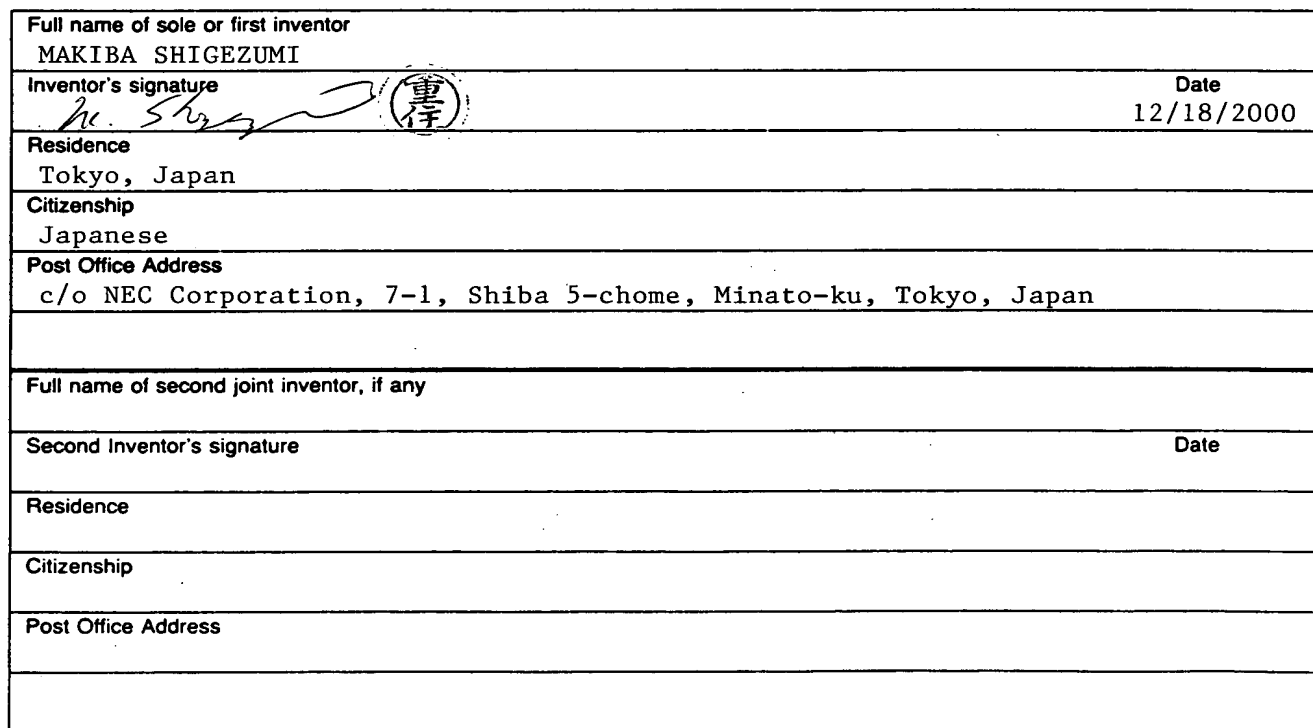 Full name of sole or first inventor
MAKIBA SHIGEZUMI
Inventor's signature Date
M. 重 12/18/2000
Residence
Tokyo, Japan
Citizenship
Japanese
Post Office Address
c/o NEC Corporation, 7-1, Shiba 5-chome, Minato-ku, Tokyo, Japan
Full name of second joint inventor, if any
Second Inventor's signature Date
Residence
Citizenship
Post Office Address